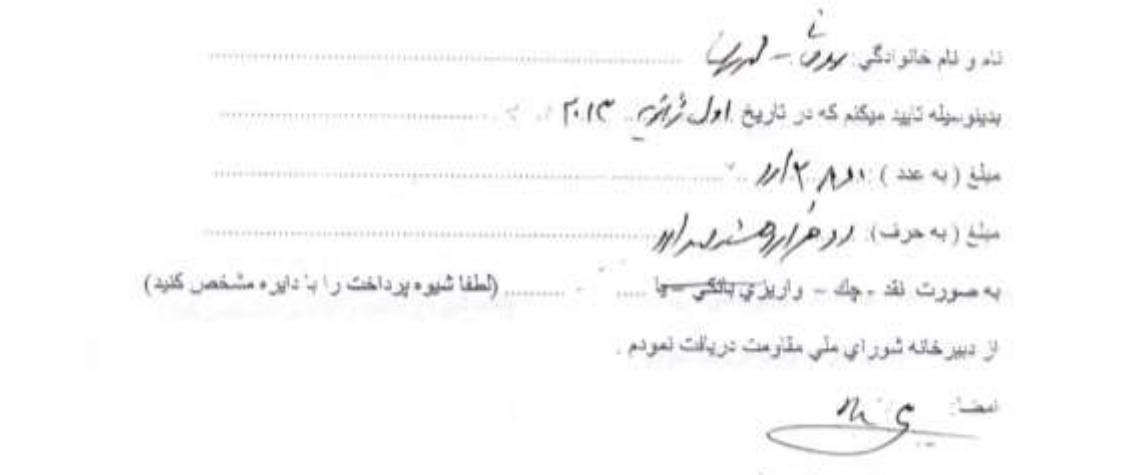 نام و نام خانوادگي:
بدينوسيله تاييد ميكنم كه در تاريخ اول ژانويه ۲۰۱۳
مبلغ ( به عدد ) :
مبلغ ( به حرف): دو هزار و هشتصد
به صورت نقد - چك - واريزي بانكي - يا ..... - .......... (لطفا شيوه پرداخت را با دايره مشخص كنيد)
از دبيرخانه شوراي ملي مقاومت دريافت نمودم .
امضا: